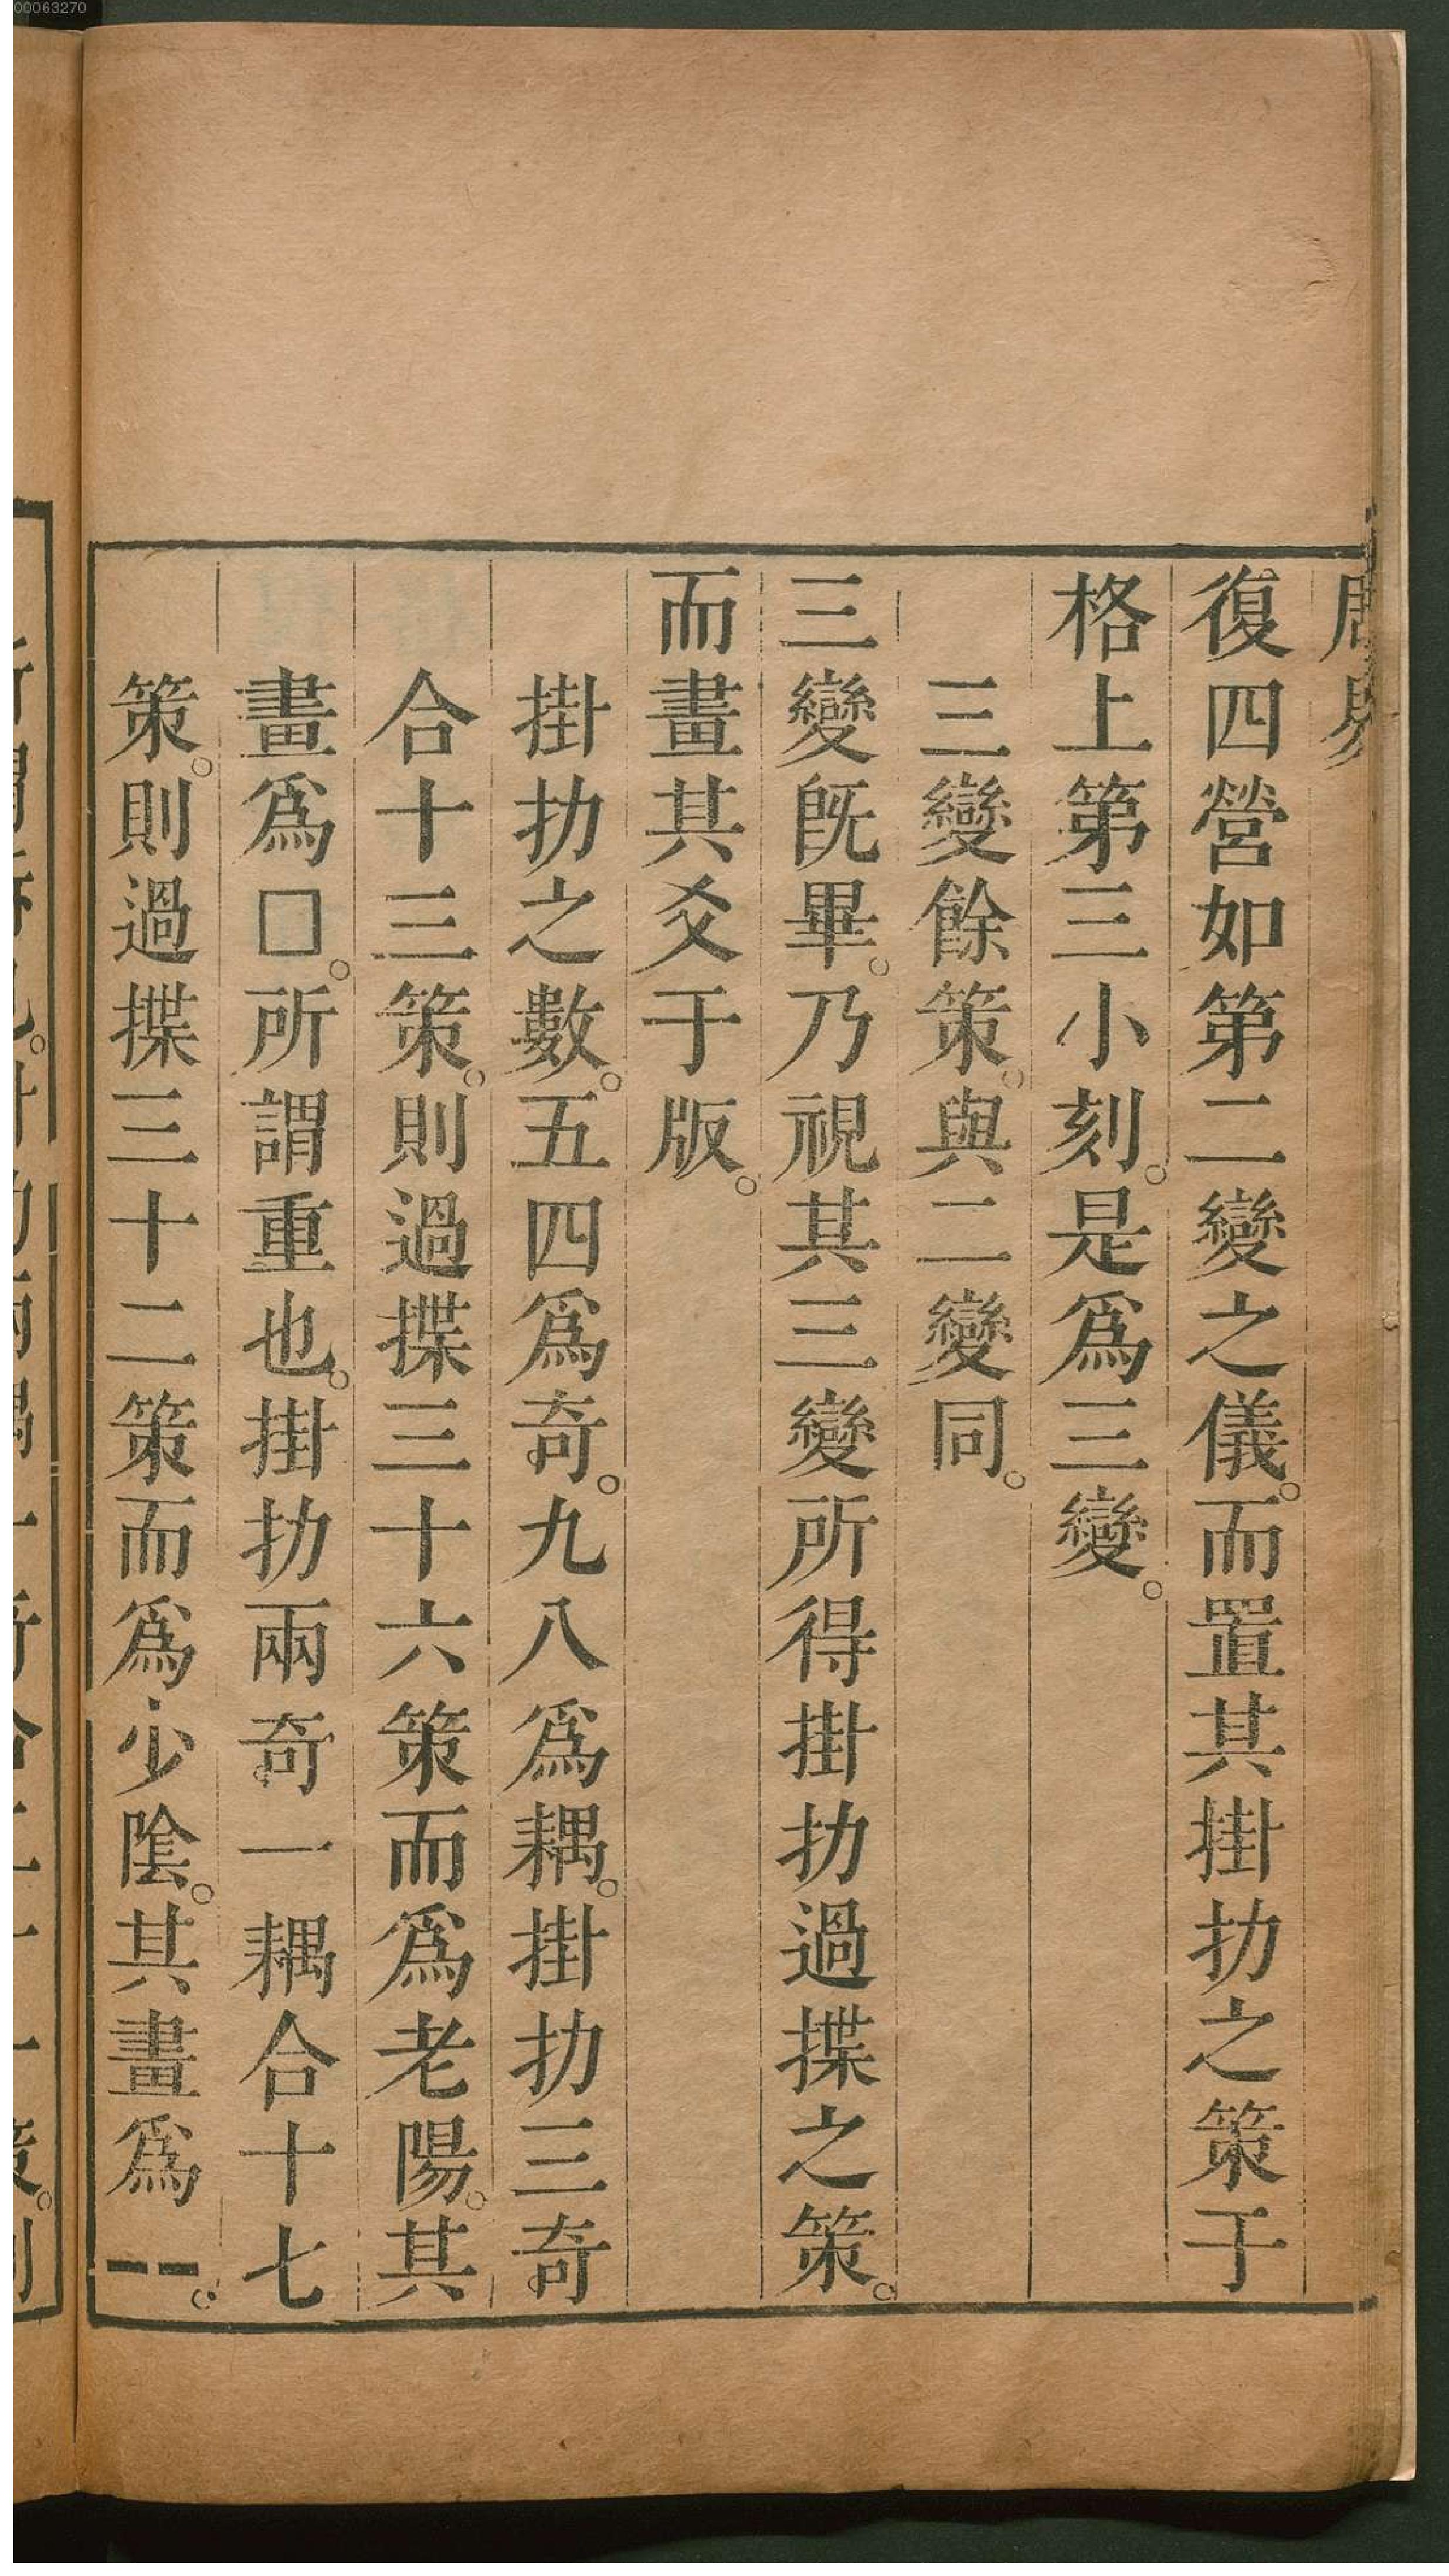 00063270
周易
復四營如第二變之儀。而置其掛扐之策于
格上第三小刻。是爲三變。
三變餘策。與二變同。
三變旣畢。乃視其三變所得掛扐過揲之策。
而畫其爻于版。
掛扐之數。五四爲奇。九八爲耦。掛扐三奇
合十三策。則過揲三十六策而爲老陽。其
畫爲□。所謂重也。掛扐兩奇一耦合十七
策。則過揲三十二策而爲少陰。其畫爲⚋。